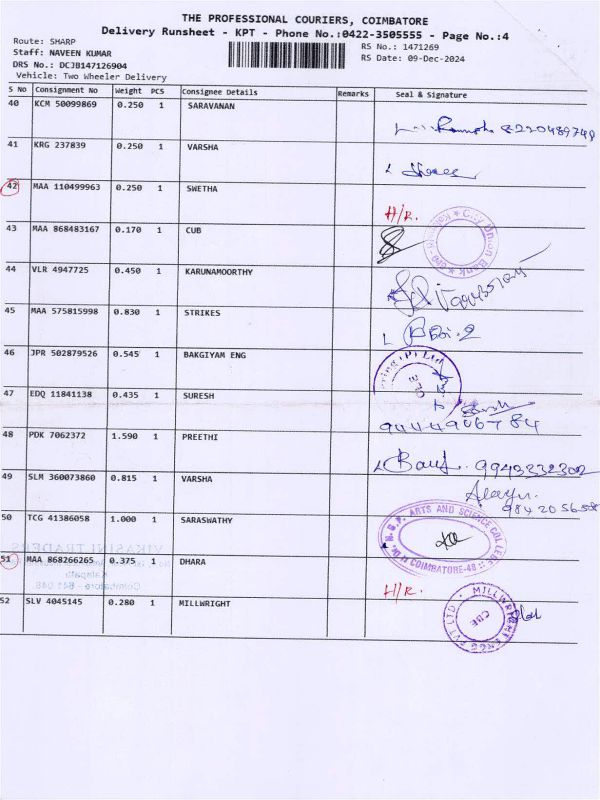 THE PROFESSIONAL COURIERS, COIMBATORE
Delivery Runsheet - KPT - Phone No.:0422-3505555 - Page No.:4
Route: SHARP
RS No.: 1471269
Staff: NAVEEN KUMAR
RS Date: 09-Dec-2024
DRS No.: DCJB147126904
Vehicle: Two Wheeler Delivery
S No Consignment No Weight PCS Consignee Details Remarks Seal & Signature
40 KCM 50099869 0.250 1 SARAVANAN
8220489748
41 KRG 237839 0.250 1 VARSHA
42 MAA 110499963 0.250 1 SWETHA
H/R.
43 MAA 868483167 0.170 1 CUB
City Union Bank
44 VLR 4947725 0.450 1 KARUNAMOORTHY
45 MAA 575815998 0.830 1 STRIKES
46 JPR 502879526 0.545 1 BAKGIYAM ENG
(P) Ltd
47 EDQ 11841138 0.435 1 SURESH
9444906784
48 PDK 7062372 1.590 1 PREETHI
9943332302
49 SLM 360073860 0.815 1 VARSHA
50 TCG 41386058 1.000 1 SARASWATHY
Dr. N.G.P. ARTS AND SCIENCE COLLEGE
COIMBATORE-48
VIKASINI TRADERS
51 MAA 868266265 0.375 1 DHARA
Kalapatti
Coimbatore - 641 048
H/R.
52 SLV 4045145 0.280 1 MILLWRIGHT
MILLWRIGHT
PVT LTD
CBE